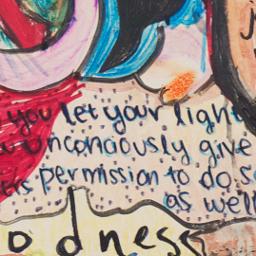 you let your light
unconciously give
ers permission to do s
as well
odness